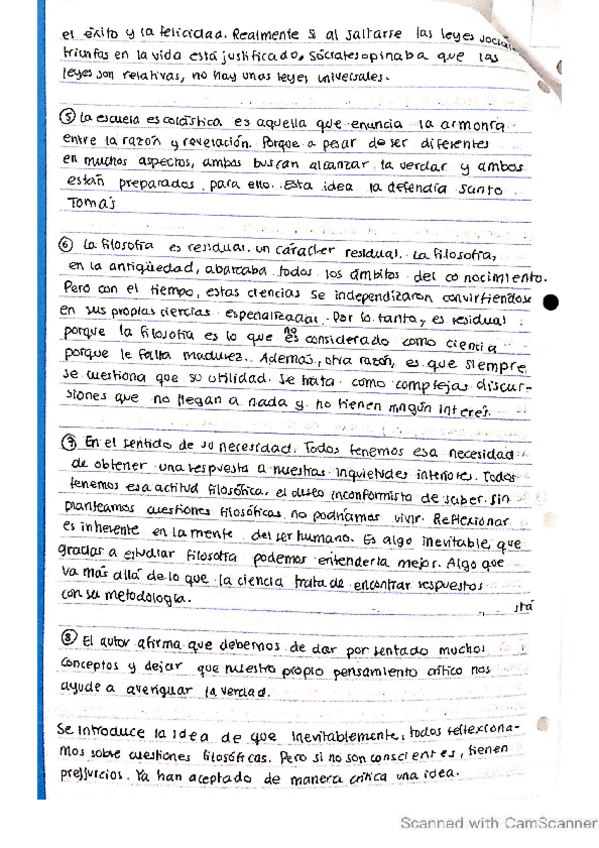 el éxito y la felicidad. Realmente si al saltarse las leyes social
triunfas en la vida está justificado, Sócrates opinaba que las
leyes son relativas, no hay unas leyes universales.
⑤ La escuela escolástica es aquella que enuncia la armonía
entre la razón y revelación. Porque a pesar de ser diferentes
en muchos aspectos, ambas buscan alcanzar la verdar y ambos
están preparados para ello. Esta idea la defendía Santo
Tomás
⑥ La filosofía es residual. un carácter residual. La filosofía,
en la antigüedad, abarcaba todos los ámbitos del conocimiento.
Pero con el tiempo, estas ciencias se independizaron convirtiéndose
en sus propias ciencias especializadas. Por lo tanto, es residual
porque la filosofía es lo que no es considerado como ciencia
porque le falta madurez. Además, otra razón, es que siempre
se cuestiona que su utilidad. Se trata como complejas discur-
siones que no llegan a nada y no tienen ningún interés.
⑦ En el sentido de su necesidad. Todos tenemos esa necesidad
de obtener una respuesta a nuestras inquietudes interiores. Todos
tenemos esa actitud filosófica. el deseo inconformista de saber. Sin
planteamos cuestiones filosóficas, no podríamos vivir. Reflexionar
es inherente en la mente del ser humano. Es algo inevitable, que
gradas a estudiar filosofía podemos entenderla mejor. Algo que
va más allá de lo que la ciencia trata de encontrar respuestas
con su metodología.
stá
⑧ El autor afirma que debemos de dar por sentado muchos
conceptos y dejar que nuestro propio pensamiento crítico nos
ayude a averiguar la verdad.
Se introduce la idea de que inevitablemente, todos reflexiona-
mos sobre cuestiones filosóficas. Pero si no son conscientes, tienen
prejjuicios. Ya han aceptado de manera crítica una idea.
Scanned with CamScanner